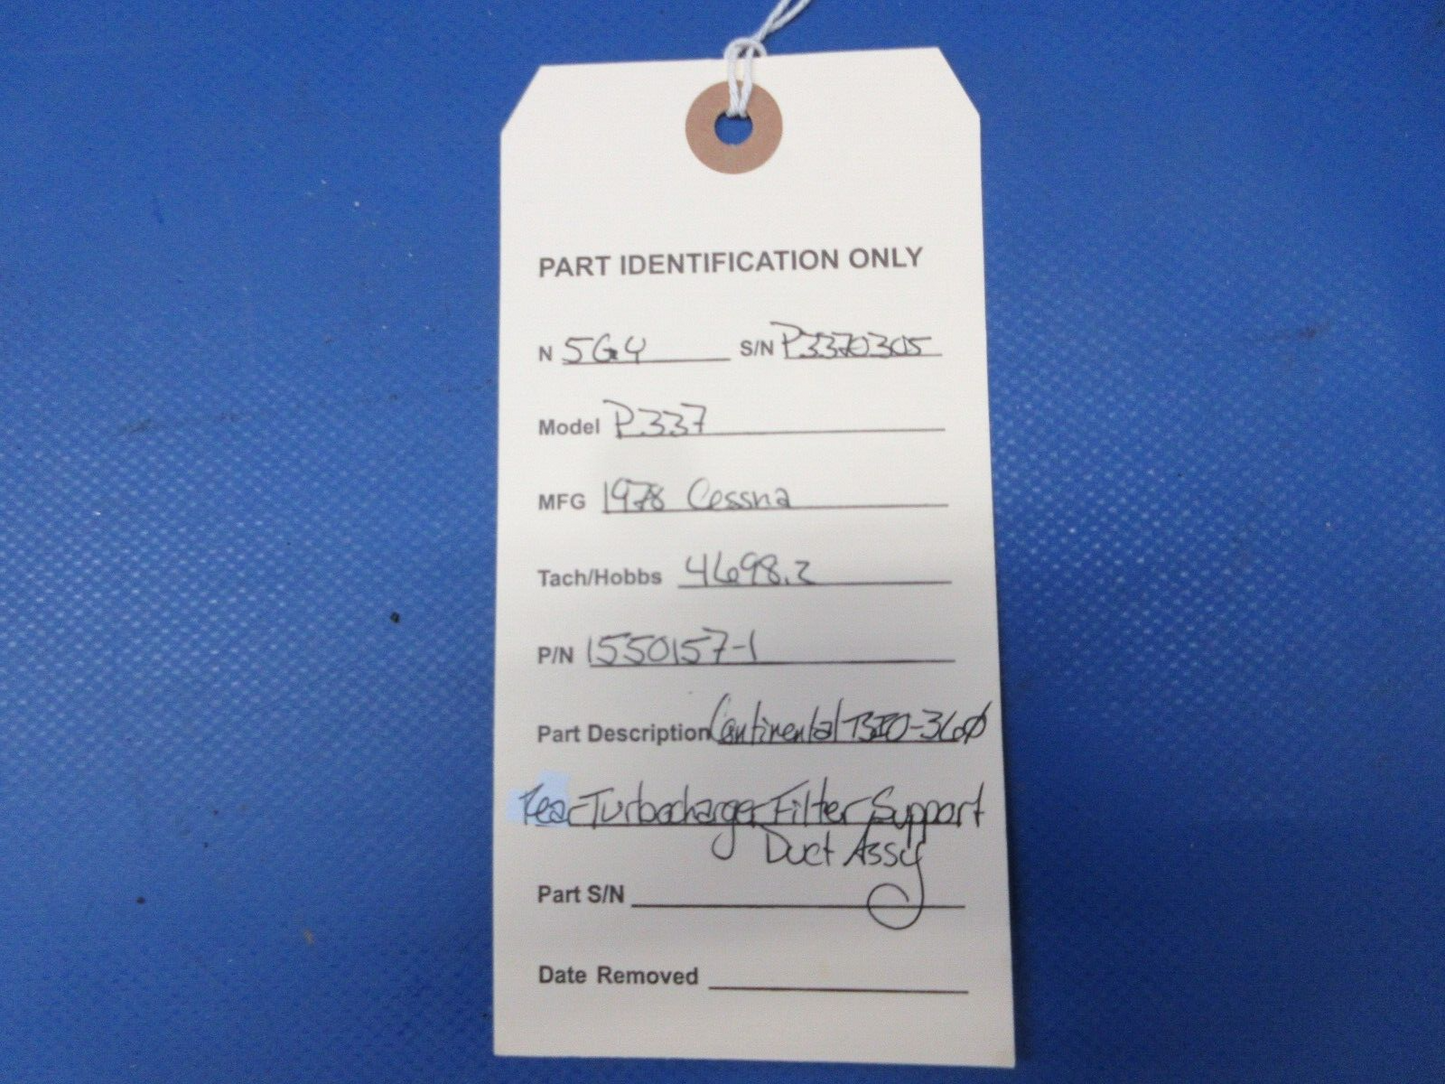 PART IDENTIFICATION ONLY
N 5GY S/N P3370305
Model P337
MFG 1978 Cessna
Tach/Hobbs 4698.2
P/N 1550157-1
Part Description Continental TSIO-360
Rear Turbocharger Filter Support
Duct Assy
Part S/N
Date Removed